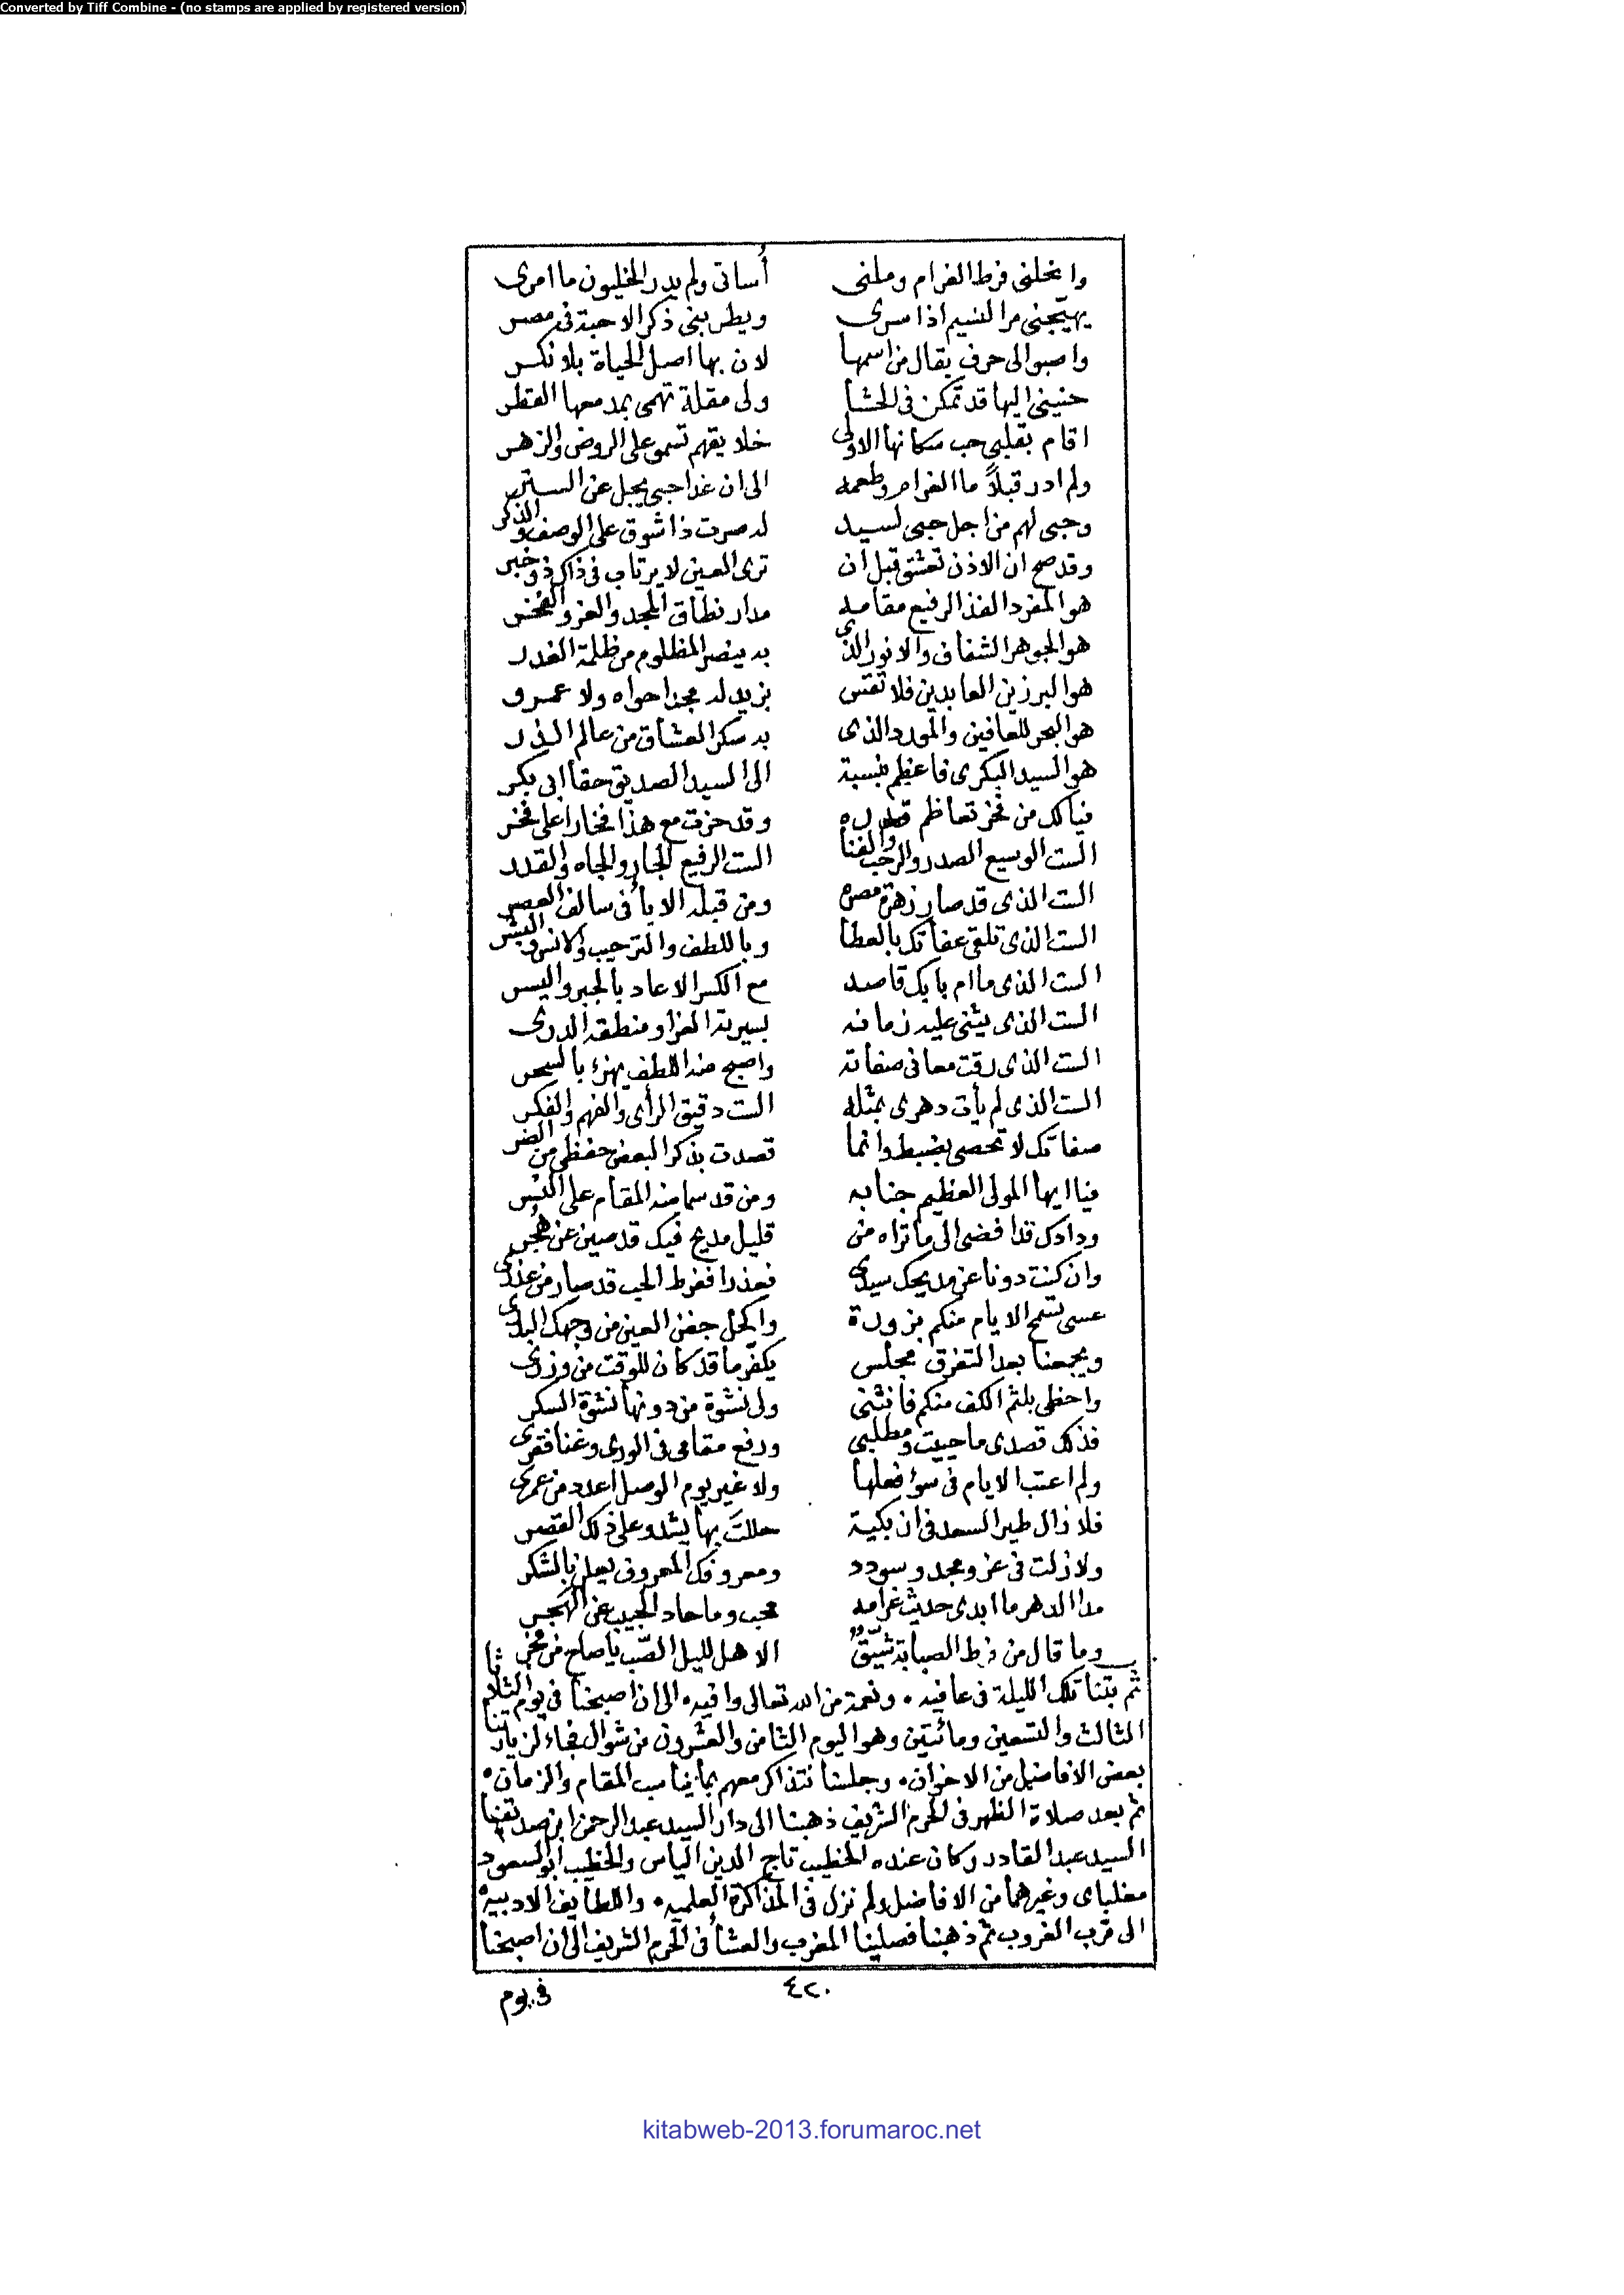 Converted by Tiff Combine - (no stamps are applied by registered version)
وانحلنى فرط الغرام وملنى أساتى ولم يدر الخليون ما امرى
يهيّجنى مر النسيم اذا سرى ويطربنى ذكر الاحبة فى مصر
واصبو الى حرف يقال من اسمها لان بها اصل الحياة بلا نكر
حنينى اليها قد تمكن فى الحشا ولى مقلة تهمى بمدمعها القطر
اقام بقلبى حب سكانها الاولى خلايقهم تسمو على الروض والزهر
ولم ادر قبلاً ما الغرام وطعمه الى ان غدا حبى يجل عن الستر
وحبى لهم من اجل حبى لسيد له صرت ذا شوق على الوصف والذكر
وقد صح ان الاذن تعشق قبل ان ترى العين لا يرتاب فى ذاك ذو خبر
هو المفرد الفذ الرفيع مقامه مدار نطاق المجد والعز والفخر
هو الجوهر الشفاف والانور الذى به ينصر المظلوم من ظلمة الغدر
هو البر زين العابدين فلا تقس بزيد له مجدا حواه ولا عمرو
هو البحر للعافين والمورد الذى به سكر العشاق من عالم الذر
هو السيد البكرى فاعظم بنسبة الى السيد الصديق حقا ابى بكر
فيالك من فخر تعاظم قدره وقد حزت مع هذا فخارا على فخر
الست الوسيع الصدر والرحب والفنا الست الرفيع الجار والجاه والقدر
الست الذى قد صار زهرة مصره ومن قبله الابأ فى سالف العصر
الست الذى تلقى عفاتك بالعطا وباللطف والترحيب والانس والبشر
الست الذى ما ام بابك قاصد مع الكسر الا عاد بالجبر واليسر
الست الذى يثنى عليه زمانه بسيرته الغرا ومنطقه الدرى
الست الذى رقت معانى صفاته واصبح منه اللطف يهزء بالسحر
الست الذى لم يأت دهرى بمثله الست دقيق الرأى والفهم والفكر
صفاتك لا تحصى بضبط وانما قصدت بذكر البعض حفظى من الضر
فيا ايها المولى العظيم جنابه ومن قد سما منه المقام على النسر
ودادك قد افضى الى ما تراه من قليل مديح فيك قد صين عن هُجر
وان كنت دونا عن مديحك سيدى فعذرا ففرط الحب قد صار من عذرى
عسى تسمح الايام منكم بزورة واكحل جفن العين من وجهك البدرى
ويجمعنا بعد التفرق مجلس يكفّر ما قد كان للوقت من وزرى
واحظى بلثم الكف منكم فانثنى ولى نشوة من دونها نشوة السكر
فذلك قصدى ما حييت ومطلبى ورفع مقامى فى الورى وغنا فقرى
ولم اعتب الايام فى سوٴ فعلها ولا غير يوم الوصل اعدد من عمرى
فلا زال طير السعد فى ازبكية حللتَ بها يشدو على ذلك القصر
ولا زلت فى عز ومجد وسودد ومعروفك المعروف يعلن بالشكر
مدا الدهر ما ابدى حديث غرامه محب وما حاد الحبيب عن الهجر
وما قال من فرط الصبابة شيّقٌ الا هل لليل الصّب يا صاح من فجر
ثم بتنا تلك الليلة فى عافيه. ونعمة من الله تعالى وافيه. الى ان اصبحنا فى يوم الثلاثا
الثالث والتسعين ومائتين وهو اليوم الثامن والعشرون من شوال فجاء لزيارتنا
بعض الافاضيل من الاخوان. وجلسنا نتذاكر معهم بما يناسب المقام والزمان.
ثم بعد صلاة الظهر فى الحرم الشريف ذهبنا الى دار السيد عبد الرحمن ابن صديقنا
السيد عبد القادر وكان عنده الخطيب تاج الدين الياس والخطيب ابو السعود
مغلباى وغيرهما من الافاضل ولم نزل فى المذاكرة العلميه. واللطايف الادبيه
الى قرب الغروب ثم ذهبنا فصلينا المغرب والعشأ فى الحرم الشريف الى ان اصبحنا
فى يوم
٤٢٠
kitabweb-2013.forumaroc.net